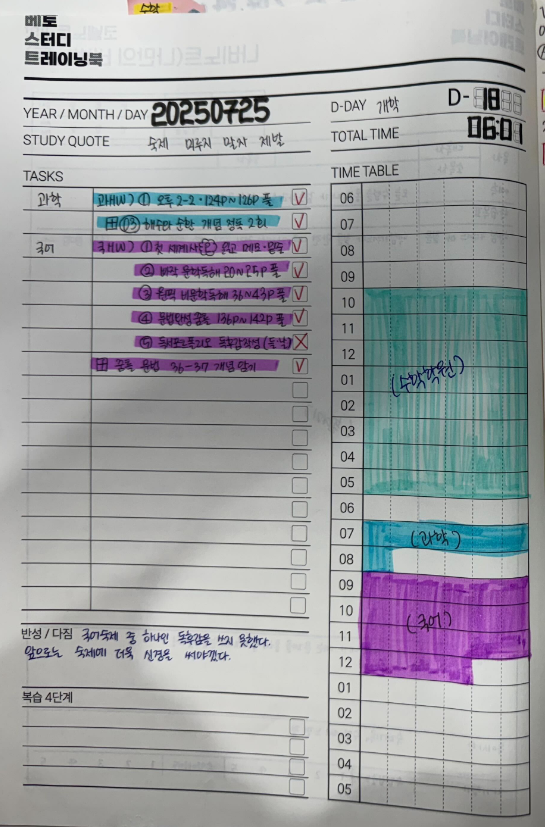 수학
메토
스터디
트레이닝북
YEAR / MONTH / DAY 20250725
D-DAY 개학 D-18
STUDY QUOTE 숙제 미루지 말자 제발
TOTAL TIME 06:01
TASKS
TIME TABLE
과학 과(HW) ① 오투 2-2 · 124p~126p 풀
03 해수의 순환 개념 정독 2회
국어 국(HW) ①
② 문학독해 20~25p 풀
③ 비문학독해 36~43p 풀
④ 136p~142p 풀
⑤ 독서포트폴리오 독후감작성
문법 36-37 개념 암기
06
07
08
09
10
11
12
01 (수학학원)
02
03
04
05
06
07 (과학)
08
09
10 (국어)
11
12
01
02
03
04
05
반성 / 다짐 국어숙제 중 하나인 독후감을 쓰지 못했다.
앞으로는 숙제에 더욱 신경을 써야겠다.
복습 4단계